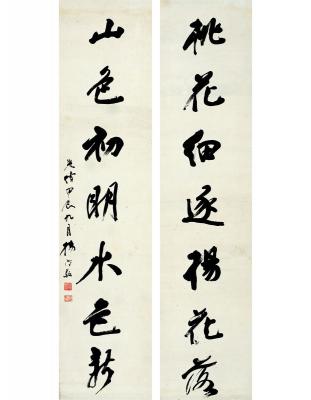 桃花細逐楊花落
山色初明水色新
光緒甲辰九月楊守敬